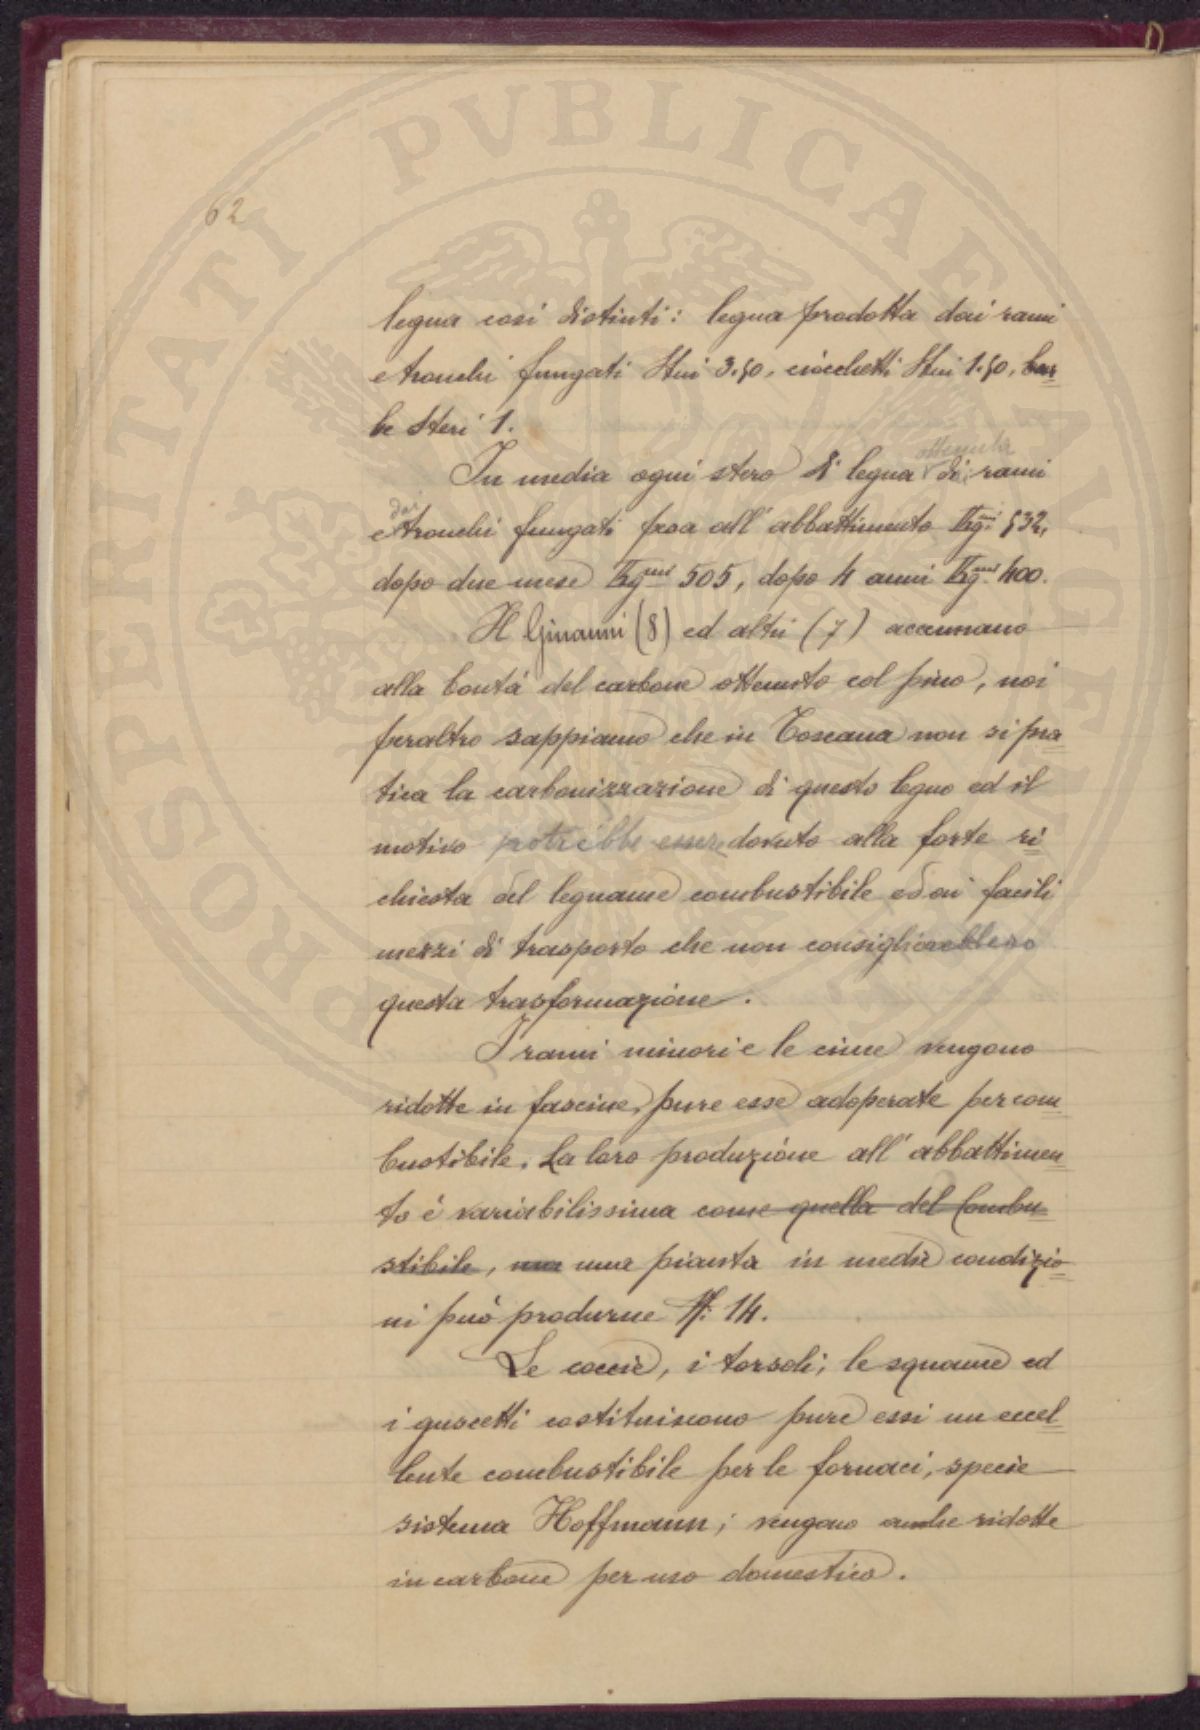 62
legna così distinti: legna prodotta dai rami
e tronchi fungati Steri 3.50, ciocchetti Steri 1.50, bar
be Steri 1.
In media ogni stero di legna ottenuta di rami
e dai tronchi fungati pesa all' abbattimento Kg.mi 532,
dopo due mesi Kg.mi 505, dopo 4 anni Kg.mi 400.
Il Ginanni (8) ed altri (7) accennano
alla bontà del carbone ottenuto col pino, noi
peraltro sappiamo che in Toscana non si pra
tica la carbonizzazione di questo legno ed il
motivo potrebbe essere dovuto alla forte ri
chiesta del legname combustibile ed ai facili
mezzi di trasporto che non consiglierebbero
questa trasformazione.
I rami minori e le cime vengono
ridotte in fascine, pure esse adoperate per com
bustibile. La loro produzione all' abbattimen
to è variabilissima come quella del Combu
stibile, una pianta in medie condizio
ni può produrne N: 14.
Le coccie, i torsoli, le squame ed
i guscetti costituiscono pure essi un eccel
lente combustibile per le fornaci, specie
sistema Hoffmann; vengono anche ridotte
in carbone per uso domestico.
PROSPERITATI PVBLICAE AVGENDAE